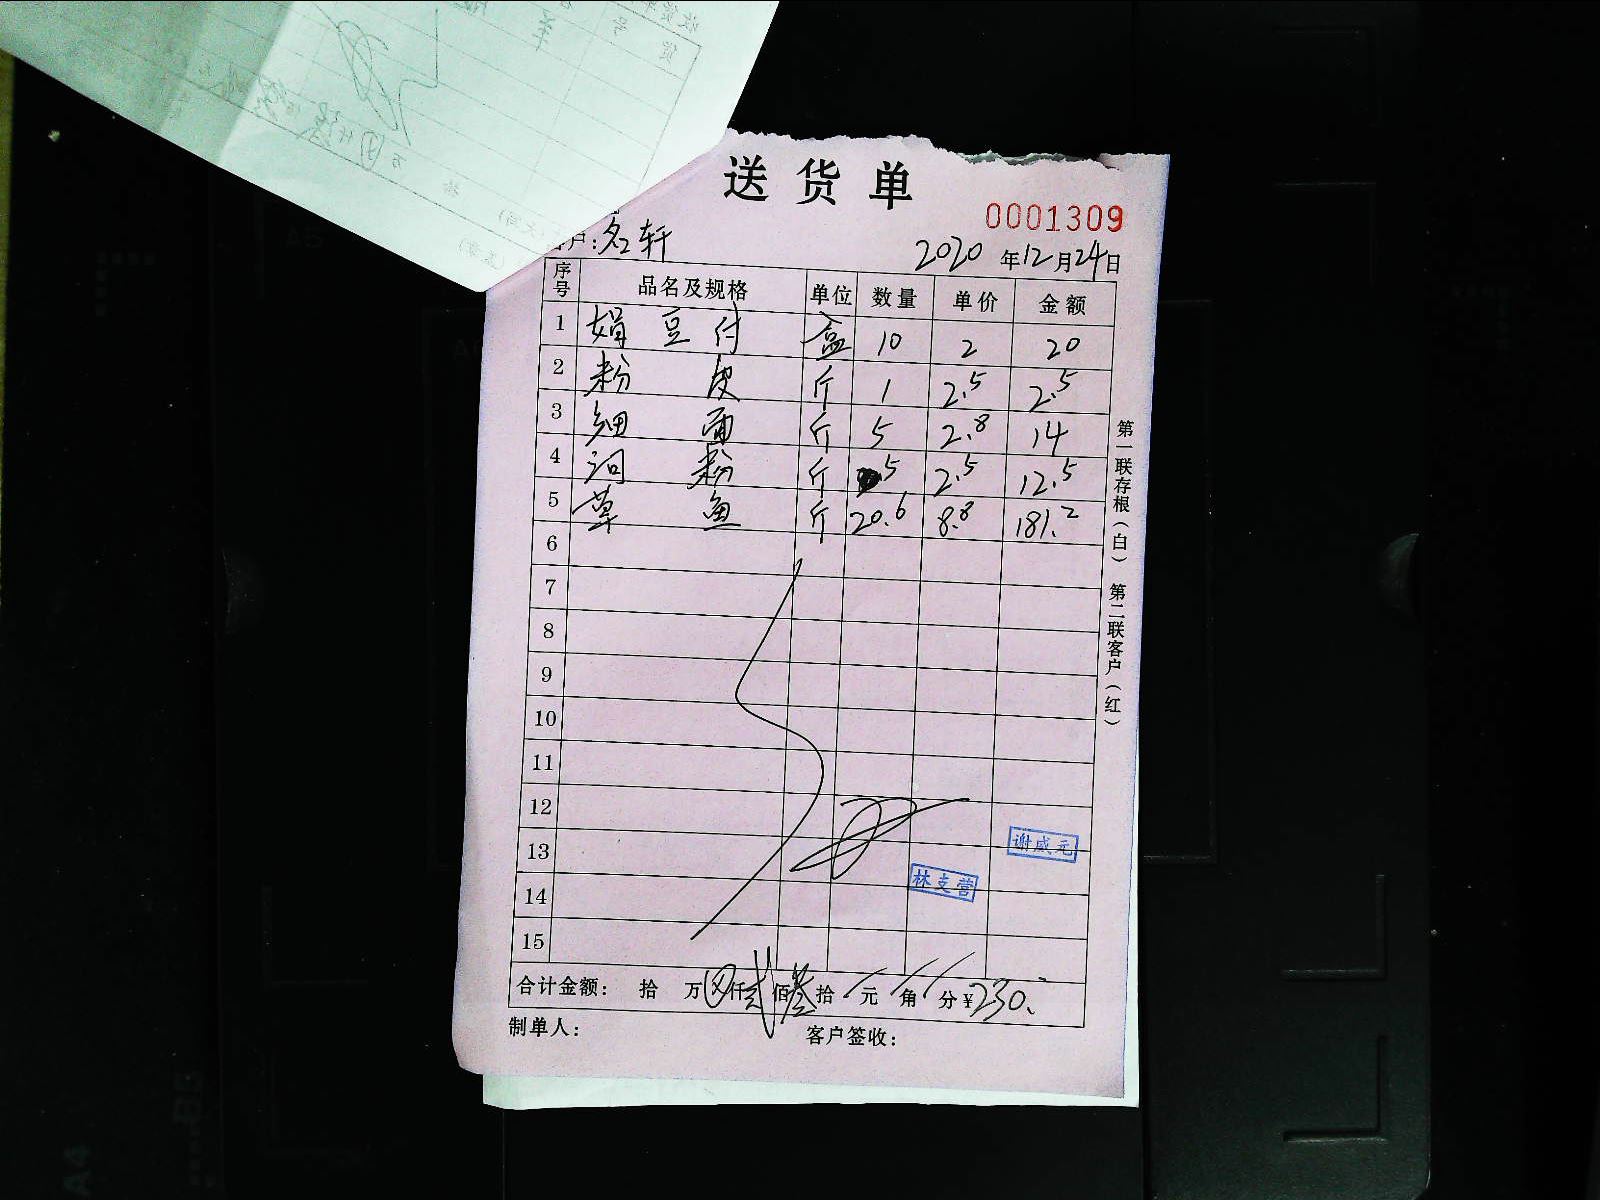 送货单
0001309
户: 名轩 2020年12月24日
序号 品名及规格 单位 数量 单价 金额
1 娟豆付 盒 10 2 20
2 粉皮 斤 1 2.5 2.5
3 细面 斤 5 2.8 14
4 河粉 斤 5 2.5 12.5
5 草鱼 斤 20.6 8.8 181.2
6
7
8
9
10
11
12
13
14
15
谢威元
林支营
合计金额: 拾 万 仟贰佰叁拾 元 角 分¥230.2
制单人: 客户签收:
第一联存根(白) 第二联客户(红)